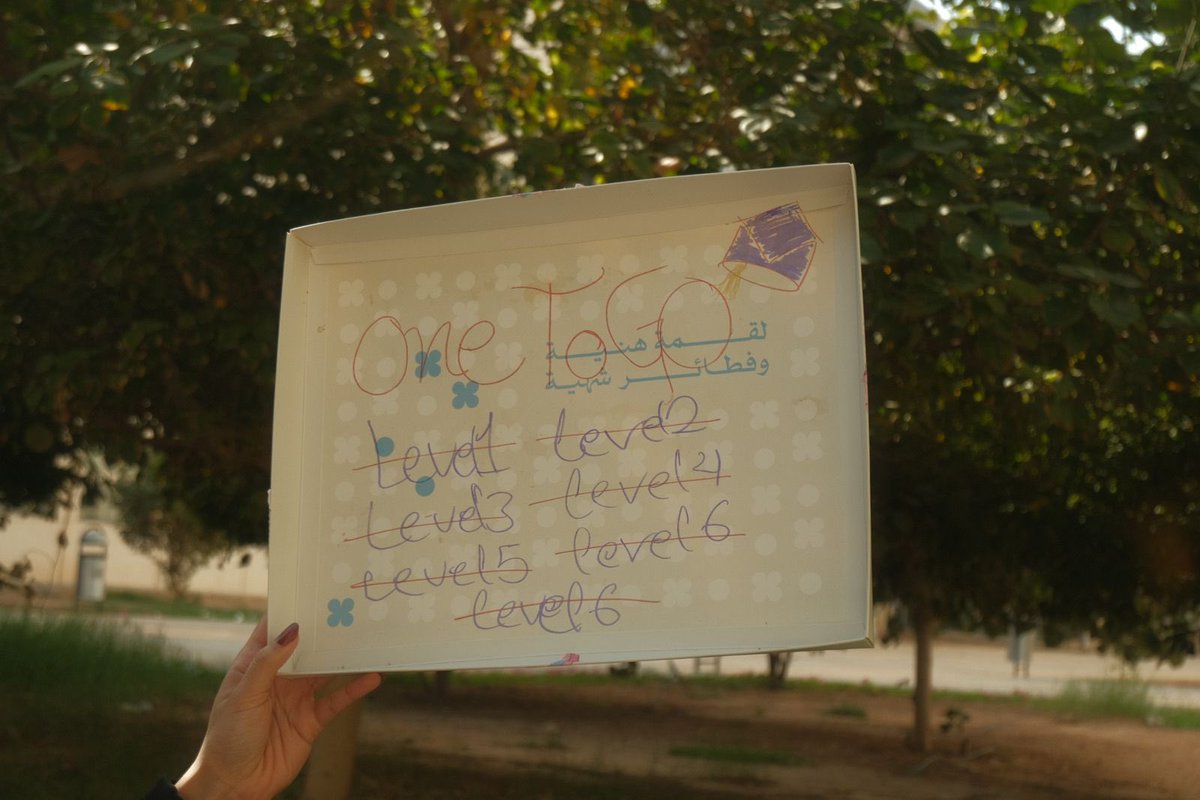 One To GO
لقمة هنية
وفطائر شهية
Level1 Level2
Level3 Level4
Level5 Level6
Level6